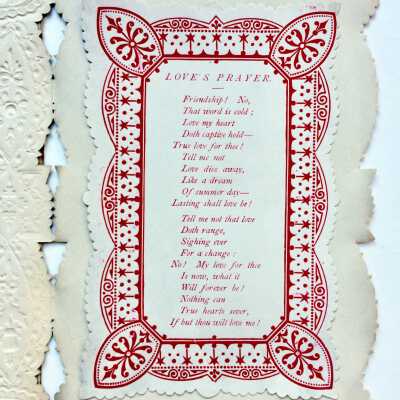 LOVE'S PRAYER.
Friendship! No,
That word is cold;
Love my heart
Doth captive hold—
True love for thee!
Tell me not
Love dies away,
Like a dream
Of summer day—
Lasting shall love be!
Tell me not that love
Doth range,
Sighing ever
For a change:
No! My love for thee
Is now, what it
Will forever be!
Nothing can
True hearts sever,
If but thou will love me!